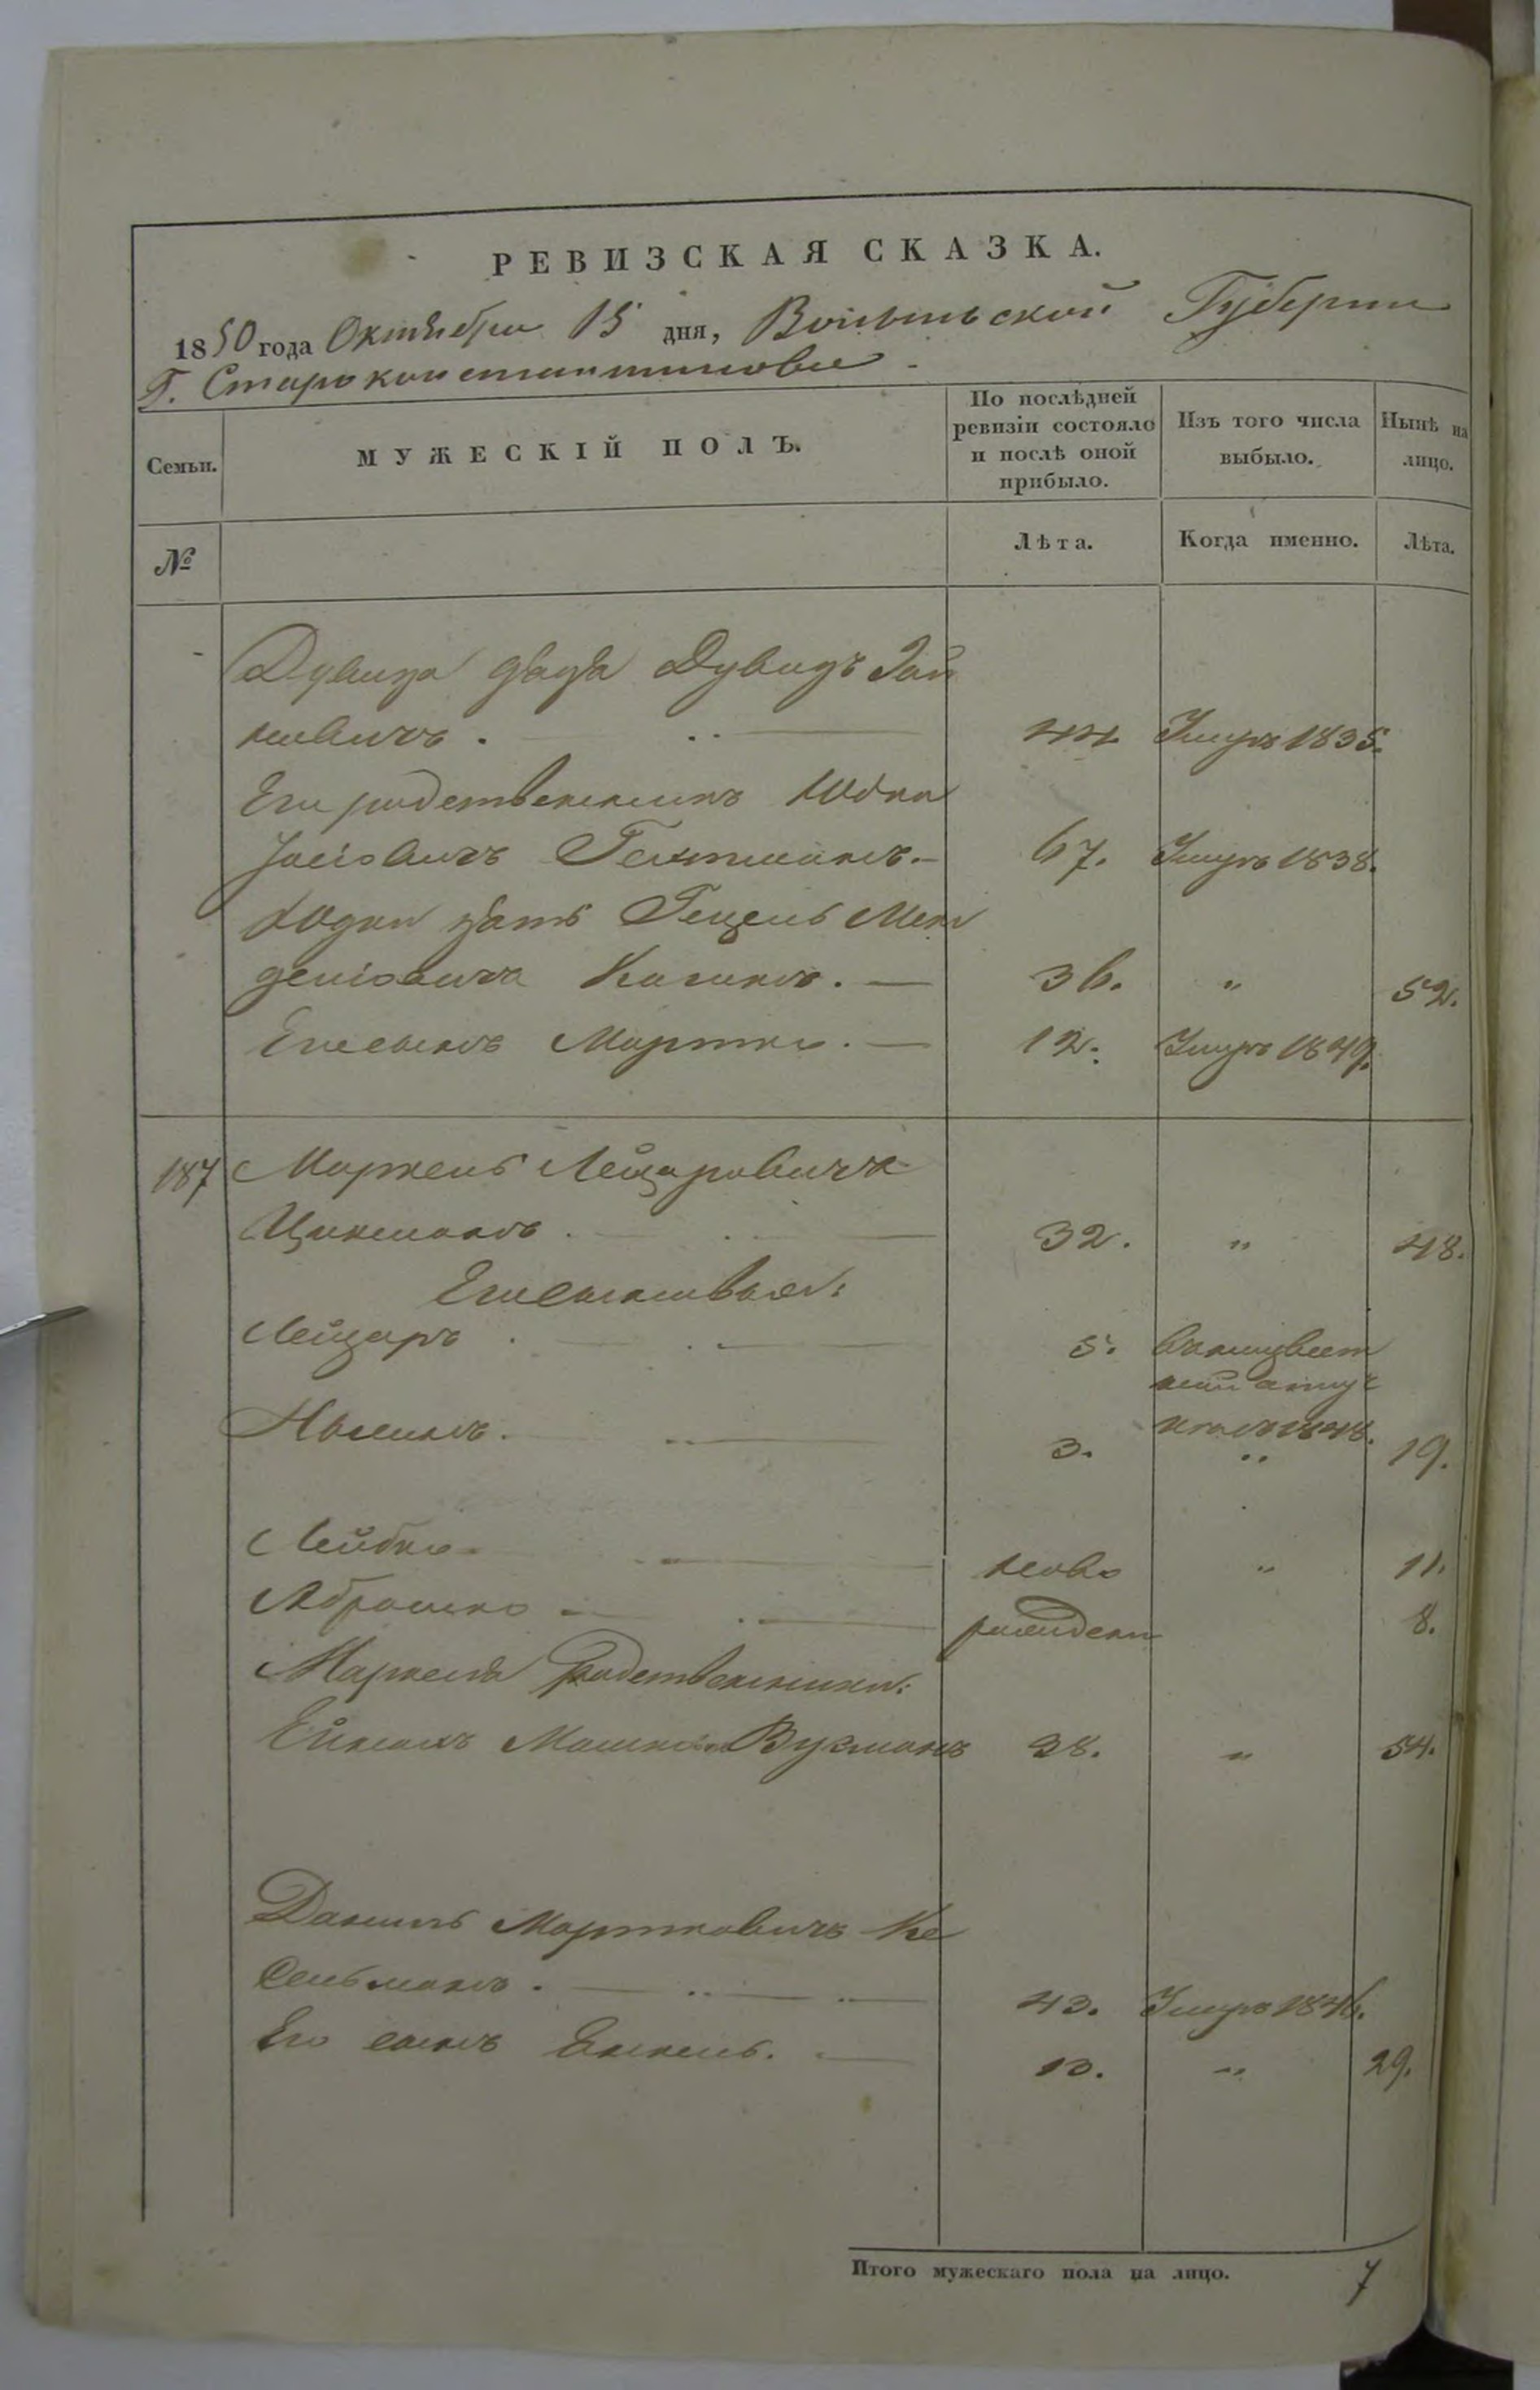 РЕВИЗСКАЯ СКАЗКА.
1850 года Октября 15 дня, Волынской Губернии
Г. Староконстантинова
Семьи. МУЖЕСКІЙ ПОЛЪ. По послѣдней ревизіи состояло и послѣ оной прибыло. Изъ того числа выбыло. Нынѣ на лицо.
№ Лѣта. Когда именно. Лѣта.
дядя Дувидъ
44 Умеръ 1835.
Его родственникъ Юдка
67. Умеръ 1838.
Юдки зять Гецель Мен
делiовичъ Каганъ. 36. " 52.
Его сынъ Мортко. 12. Умеръ 1849.
187 Маркель Лейзаровичъ
Цукманъ. 32. " 48.
Его сыновья:
Лейзаръ 5. въ неизвест
ной отлуч
ке съ 1848.
3. " 19.
Лейбко ново " 11.
Абрамко рожденн 8.
Маркеля родственники:
Мошков. Вугманъ 38. " 54.
Данель Мортковичъ Ке
сельманъ. 43. Умеръ 1846.
Его сынъ 13. " 29.
Итого мужескаго пола на лицо. 7